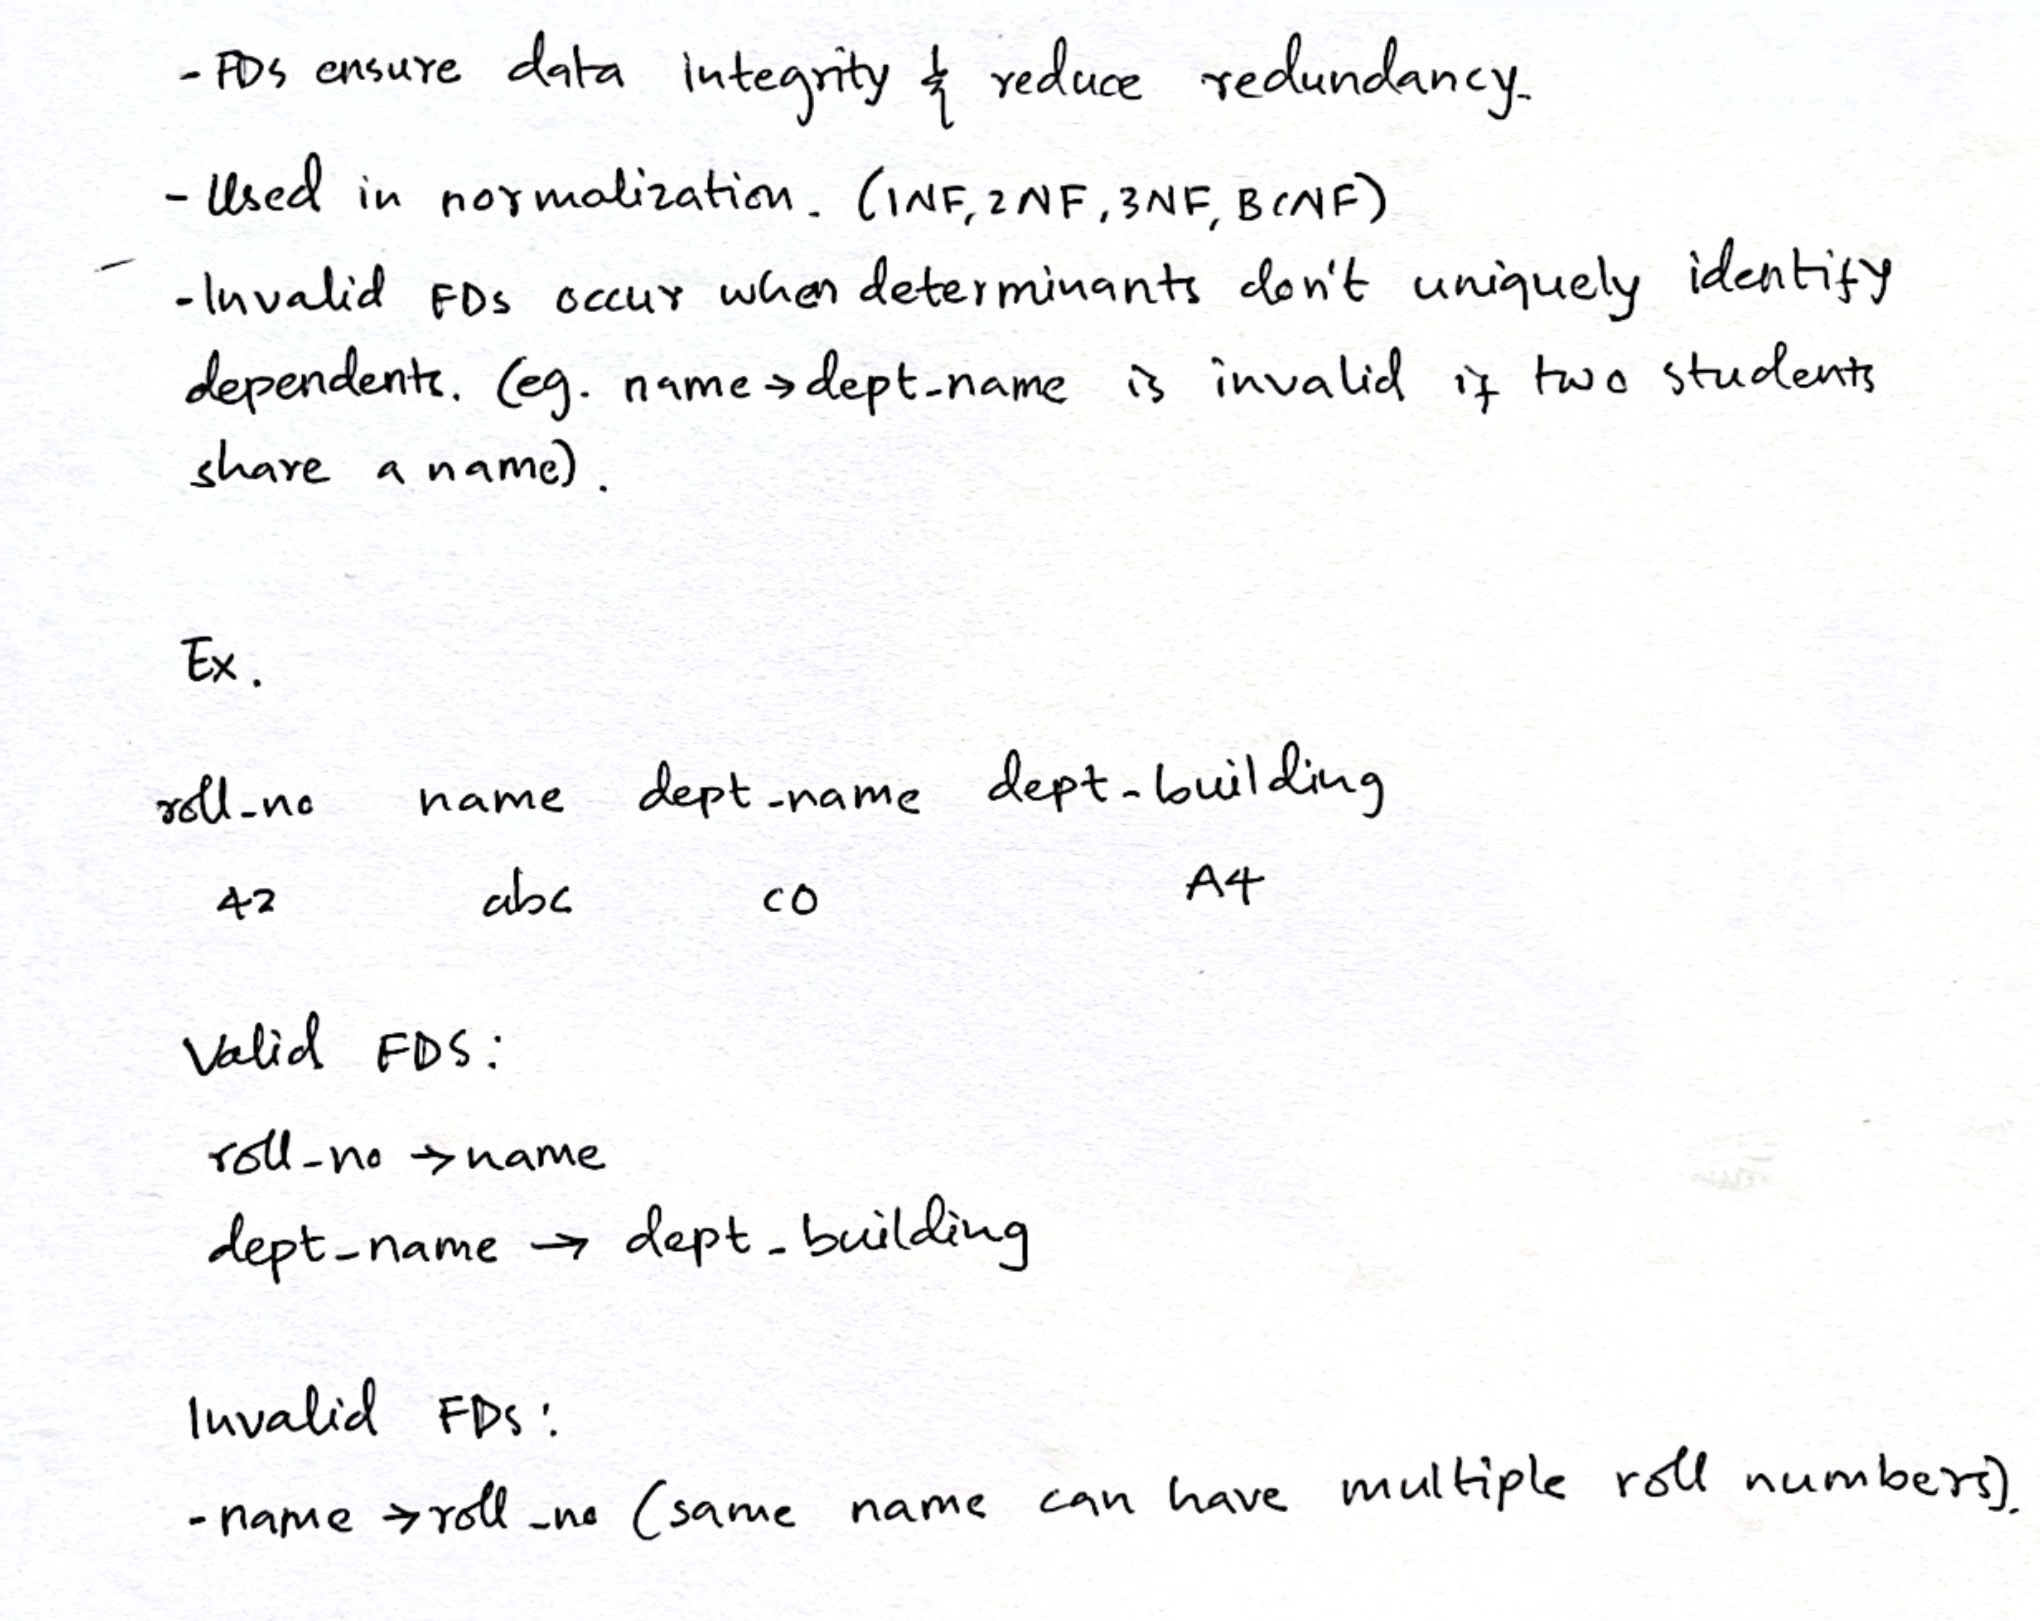 - FDs ensure data integrity & reduce redundancy.
- Used in normalization. (1NF, 2NF, 3NF, BCNF)
- Invalid FDs occur when determinants don't uniquely identify
dependents. (eg. name → dept_name is invalid if two students
share a name).
Ex.
roll_no name dept_name dept_building
42 abc CO A4
Valid FDS:
roll_no → name
dept_name → dept_building
Invalid FDs:
- name → roll_no (same name can have multiple roll numbers).